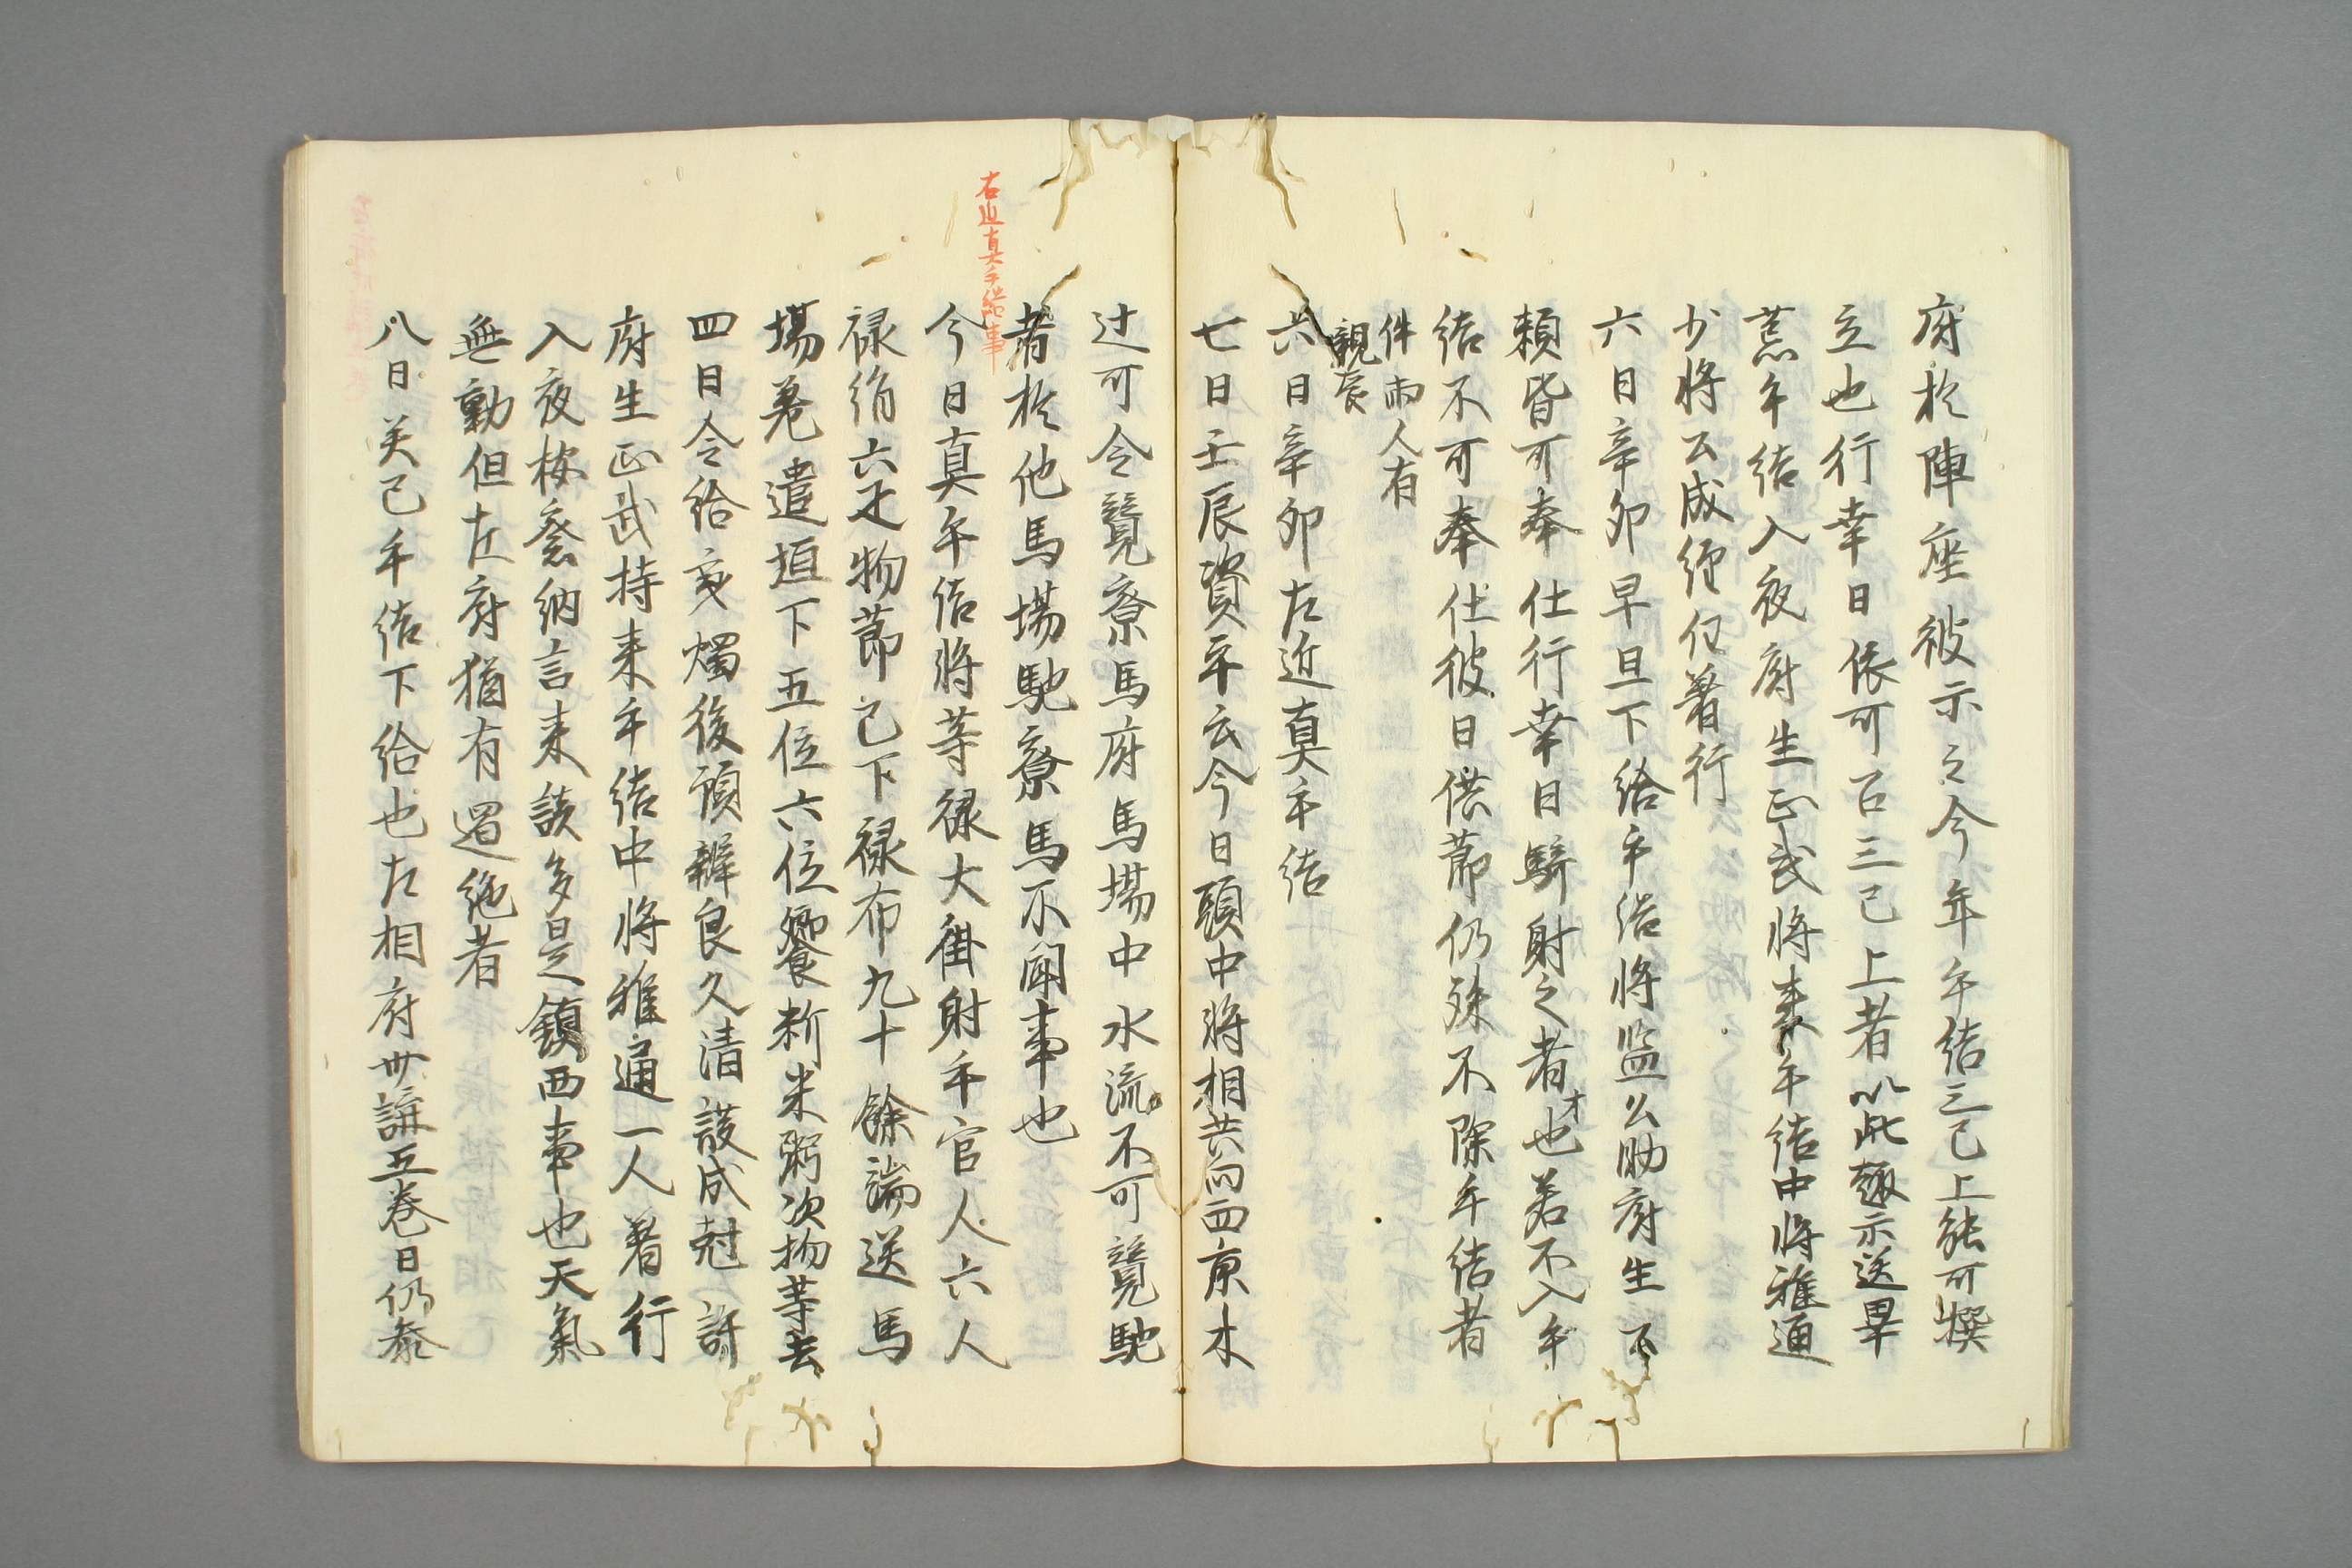 府於陣座彼示之今年手結三已上能可撰
立也行幸日依可召三已上者以此趣示送畢
荒手結入夜府生正武将来手結中将雅通
少将公成経任着行
六日辛卯早旦下給手結将監公助府生下
頼皆可奉仕行幸日騎射之者也才若不入手
結不可奉仕彼日供節仍殊不除手結者
件両人有
観食
六日辛卯左近真手結
七日壬辰資平云今日頭中将相共向西京木
辻可令競寮馬府馬場中水流不可競馳
者於他馬場馳寮馬不聞事也
右近真手結事
今日真手結将等禄大褂射手官人六人
禄絹六疋物節已下禄布九十餘端送馬
場巻遣垣下五位六位饗料米粥次物等去
四日令給亥燭後頭辨良久清談成尅許
府生正武持来手結中将雅通一人着行
入夜按察納言来談多是鎮西事也天氣
無動但左府猶有遏絶者
八日癸巳手結下給也左相府卅講五巻日仍参